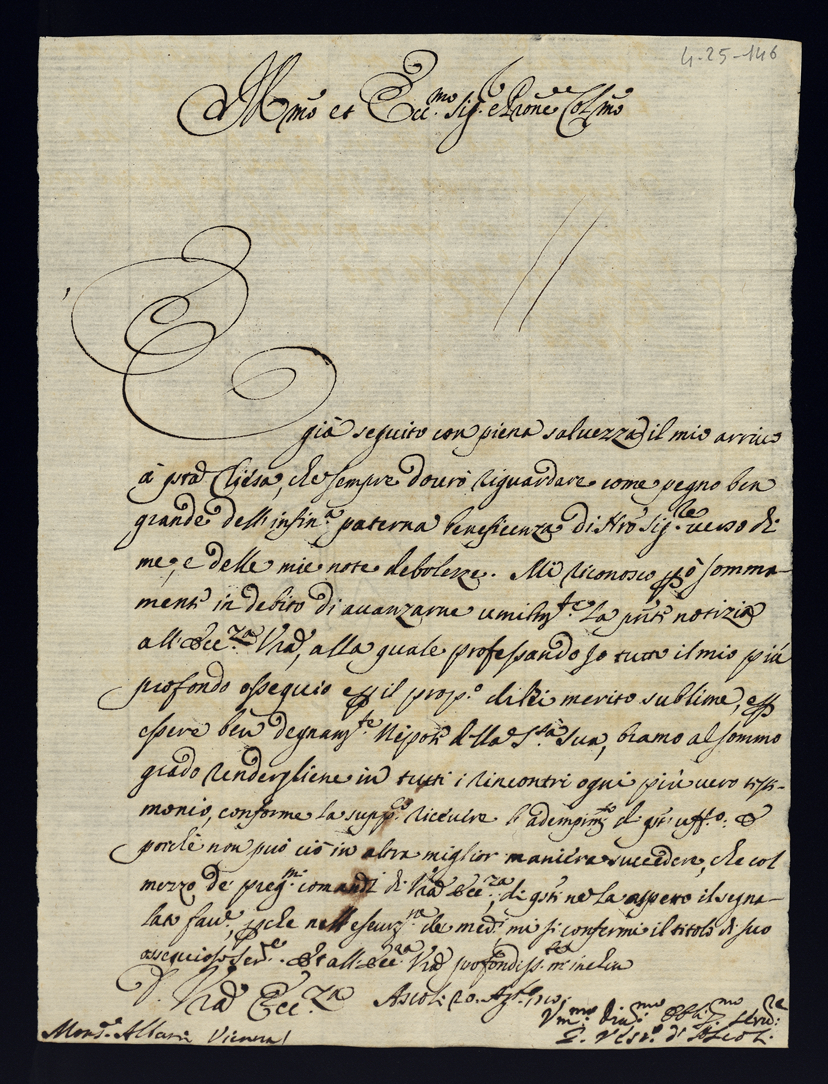 4-25-146
Ill.mo et Ecc.mo Sig.re e Prōne Col.mo
È già seguito con piena salvezza il mio arrivo
à q.sta Chiesa, che sempre dovrò riguardare come pegno ben
grande dell'infin.a paterna beneficenza di N.ro Sig.re verso di
me, e delle mie note debolezze. Mi riconosco però somma-
mente in debito di avanzarne umilm.te la pn̄te notizia
all'Ecc.za V.ra, alla quale professando Io tutto il mio più
profondo ossequio per il prop.o di Lei merito sublime, e per
essere ben degnam.te Nipote della S.tà Sua, bramo al sommo
grado rendergliene in tutti i rincontri ogni più vero testi-
monio, conforme la supp.co ricevere l'adempim.to di q.sto uff.o. E
perche non può ciò in altra miglior maniera succedere, che col
mezzo de preg.mi comandi di V.ra Ecc.za, di q.sti ne la aspetto il segna-
lato fav.e, perche nell'esecuz.ne de med.mi mi si confermi il titolo di suo
ossequioso Ser.e. Et all'Ecc.za V.ra profondiss.te m'inchino
D. V.ra Ecc.za Ascoli 20. Ag.to
V.mo Div.mo Obl.mo Serv.re
Vesc.o di Ascoli.
Mons.r Albani Vienna